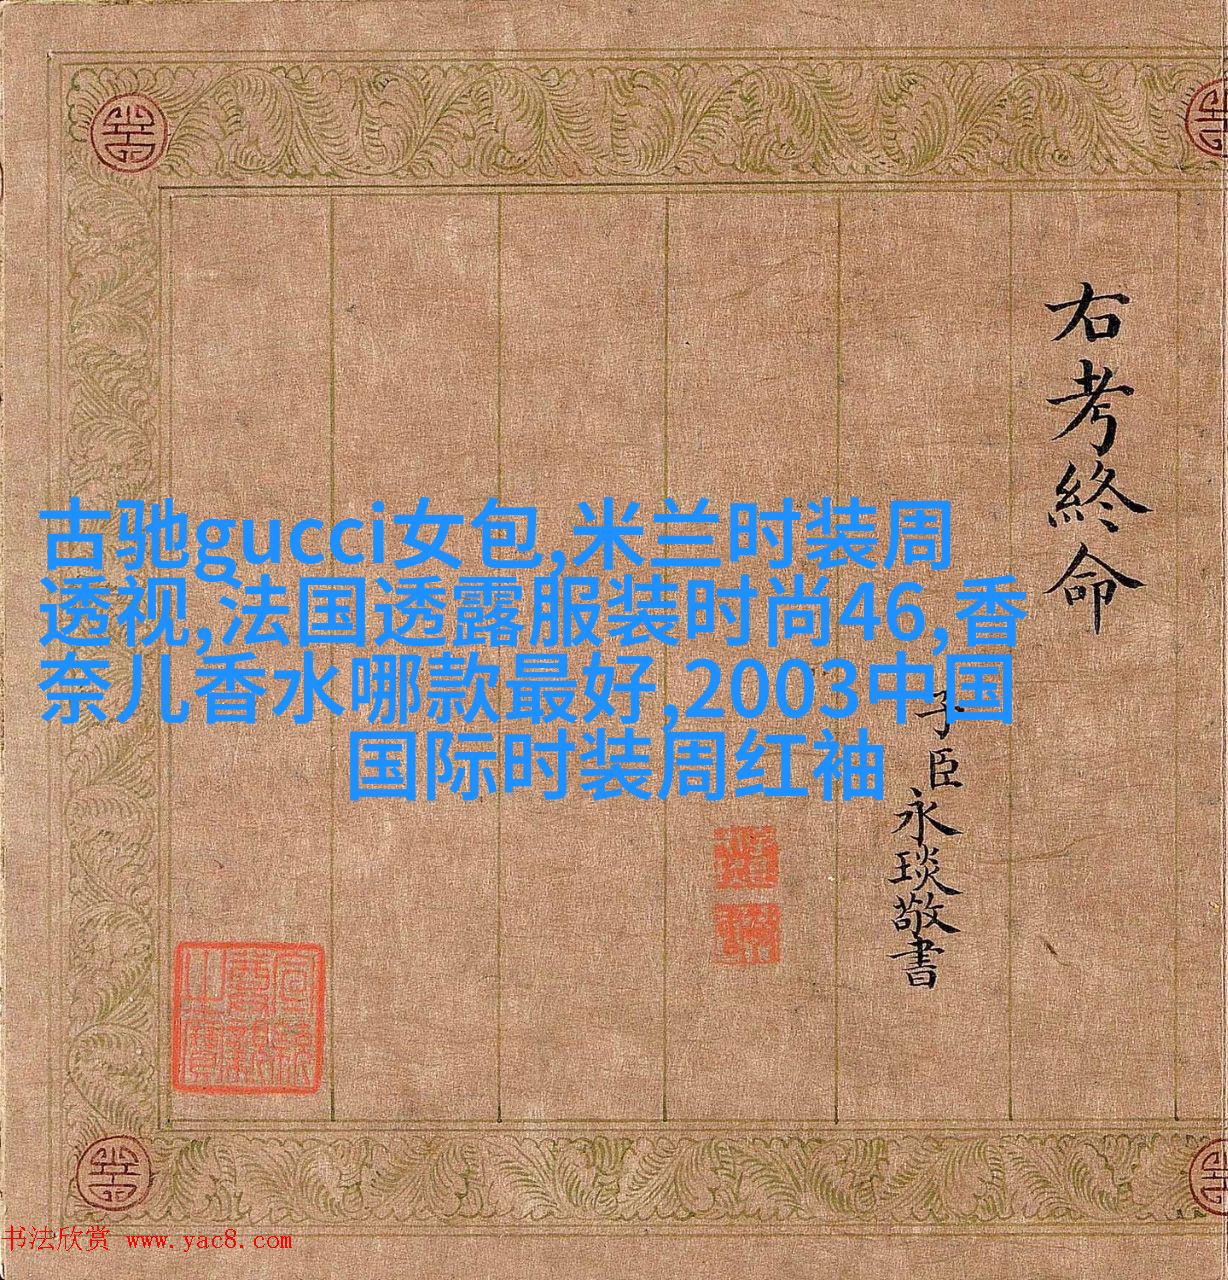 右考終命
子臣永琰敬書
古驰gucci女包,米兰时装周
透视,法国透露服装时尚46,香
奈儿香水哪款最好,2003中国
国际时装周红袖
宣統御覽之寶
书法欣赏 www.yac8.com